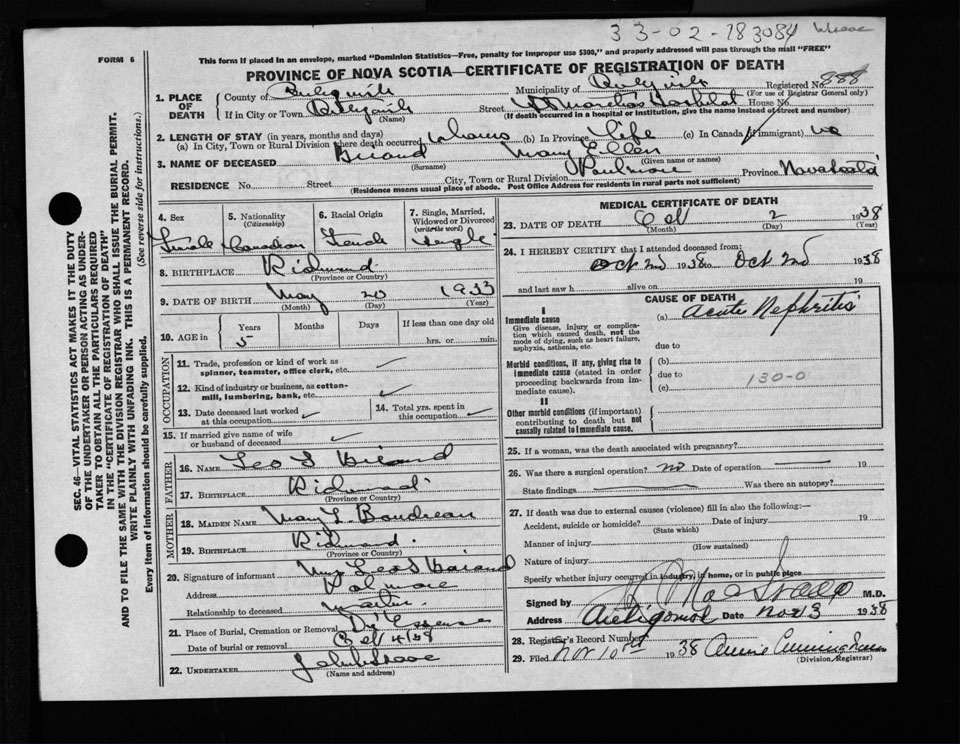 33-02-783084
FORM 6
This form if placed in an envelope, marked "Dominion Statistics—Free, penalty for improper use $300," and properly addressed will pass through the mail "FREE"
PROVINCE OF NOVA SCOTIA—CERTIFICATE OF REGISTRATION OF DEATH
1. PLACE OF DEATH
County of
Municipality of
Registered No. 888
(For use of Registrar General only)
If in City or Town
(Name)
Street St Martha's Hospital House No.
(If death occurred in a hospital or institution, give the name instead of street and number)
2. LENGTH OF STAY (in years, months and days)
(a) In City, Town or Rural Division where death occurred
(b) In Province life
(c) In Canada if immigrant
3. NAME OF DECEASED
(Surname)
Mary Ellen
(Given name or names)
RESIDENCE No. Street
City, Town or Rural Division
Province Nova Scotia
(Residence means usual place of abode. Post Office Address for residents in rural parts not sufficient)
SEC. 46—VITAL STATISTICS ACT MAKES IT THE DUTY
OF THE UNDERTAKER OR PERSON ACTING AS UNDER-
TAKER TO OBTAIN ALL THE PARTICULARS REQUIRED
IN THE "CERTIFICATE OF REGISTRATION OF DEATH"
AND TO FILE THE SAME WITH THE DIVISION REGISTRAR WHO SHALL ISSUE THE BURIAL PERMIT.
WRITE PLAINLY WITH UNFADING INK. THIS IS A PERMANENT RECORD.
Every item of information should be carefully supplied. (See reverse side for instructions.)
4. Sex
Female
5. Nationality
(Citizenship)
Canadian
6. Racial Origin
French
7. Single, Married, Widowed or Divorced
(write the word)
Single
8. BIRTHPLACE Richmond
(Province or Country)
9. DATE OF BIRTH May 20 1933
(Month) (Day) (Year)
10. AGE in Years Months Days If less than one day old
5 hrs. or min.
OCCUPATION
11. Trade, profession or kind of work as
spinner, teamster, office clerk, etc.
12. Kind of industry or business, as cotton-
mill, lumbering, bank, etc.
13. Date deceased last worked
at this occupation
14. Total yrs. spent in
this occupation
15. If married give name of wife
or husband of deceased
FATHER
16. NAME Leo
17. BIRTHPLACE Richmond
(Province or Country)
MOTHER
18. MAIDEN NAME May L Boudreau
19. BIRTHPLACE Richmond
(Province or Country)
20. Signature of informant Mrs Leo
Address
Relationship to deceased
21. Place of Burial, Cremation or Removal
Date of burial or removal Oct 4/38
22. UNDERTAKER
(Name and address)
MEDICAL CERTIFICATE OF DEATH
23. DATE OF DEATH Oct 2 1938
(Month) (Day) (Year)
24. I HEREBY CERTIFY that I attended deceased from:
Oct 2nd 1938 to Oct 2nd 1938
and last saw h alive on 19
CAUSE OF DEATH
I
Immediate cause
Give disease, injury or complica-
tion which caused death, not the
mode of dying, such as heart failure,
asphyxia, asthenia, etc.
(a) Acute Nephritis
due to
Morbid conditions, if any, giving rise to
immediate cause (stated in order
proceeding backwards from im-
mediate cause).
(b)
due to
(c)
130-0
II
Other morbid conditions (if important)
contributing to death but not
causally related to immediate cause.
25. If a woman, was the death associated with pregnancy?
26. Was there a surgical operation? no Date of operation 19
State findings Was there an autopsy?
27. If death was due to external causes (violence) fill in also the following:—
Accident, suicide or homicide? Date of injury 19
(State which)
Manner of injury
(How sustained)
Nature of injury
Specify whether injury occurred in industry, in home, or in public place
Signed by M.D.
Address Antigonish Date Nov 3 1938
28. Registrar's Record Number
29. Filed Nov 10th 1938 Annie Cunningham
(Division Registrar)